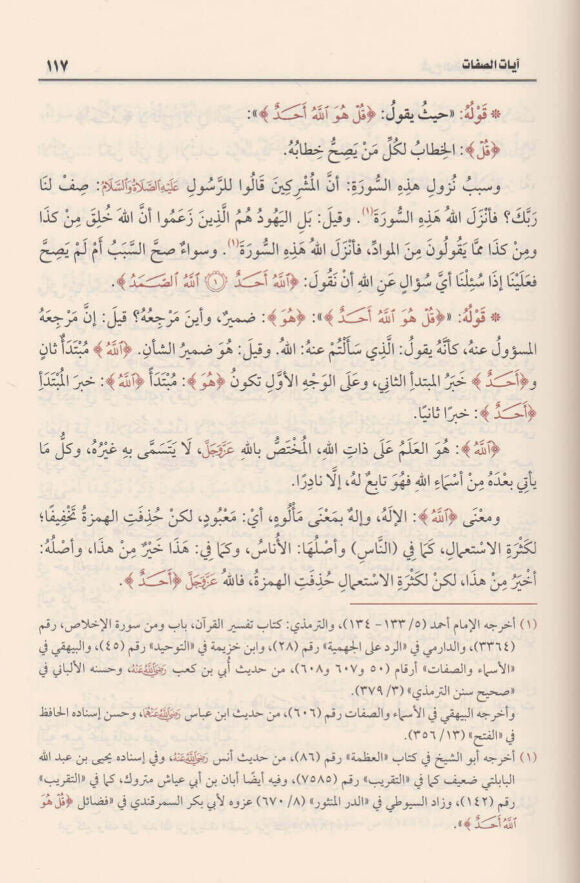 آيات الصفات ١١٧
* قَوْلُهُ: «حيثُ يقولُ: ﴿قُلْ هُوَ ٱللَّهُ أَحَدٌ﴾»:
﴿قُلْ﴾: الخِطابُ لكُلِّ مَنْ يَصِحُّ خِطابُهُ.
وسببُ نُزولِ هذِهِ السُّورَةِ: أنَّ المُشْرِكينَ قالُوا للرَّسُولِ عَلَيْهِ الصَّلَاةُ وَالسَّلَامُ: صِفْ لنَا
رَبَّكَ؟ فأَنْزَلَ اللهُ هَذِهِ السُّورَةَ(١). وقيلَ: بَلِ اليَهُودُ هُمُ الَّذينَ زَعَمُوا أنَّ اللهَ خُلِقَ مِنْ كذَا
ومِنْ كذَا ممَّا يَقُولُونَ مِنَ الموادِّ، فأَنْزَلَ اللهُ هَذِهِ السُّورَةَ(١). وسواءٌ صحَّ السَّبَبُ أَمْ لَمْ يَصِحَّ
فعَلَيْنا إذَا سُئِلْنا أيَّ سُؤالٍ عَنِ اللهِ أنْ نَقُولَ: ﴿ٱللَّهُ أَحَدٌ ۝١ ٱللَّهُ ٱلصَّمَدُ﴾.
* قَوْلُهُ: «﴿قُلْ هُوَ ٱللَّهُ أَحَدٌ﴾»: ﴿هُوَ﴾: ضميرٌ، وأينَ مَرْجِعُهُ؟ قيلَ: إنَّ مَرْجِعَهُ
المسؤولُ عنهُ، كأنَّهُ يقولُ: الَّذي سَأَلْتُمْ عنهُ: اللهُ. وقيلَ: هُوَ ضميرُ الشأنِ. ﴿ٱللَّهُ﴾ مُبْتَدَأٌ ثانٍ
و﴿أَحَدٌ﴾ خَبَرُ المبتدأِ الثاني، وعَلَى الوَجْهِ الأوَّلِ تكونُ ﴿هُوَ﴾: مُبْتَدَأً ﴿ٱللَّهُ﴾: خبرَ المُبْتَدَأِ
﴿أَحَدٌ﴾: خبرًا ثانيًا.
﴿ٱللَّهُ﴾: هُوَ العَلَمُ عَلَى ذاتِ اللهِ، المُخْتَصُّ باللهِ عَزَّوَجَلَّ، لَا يَتَسَمَّى بِهِ غيْرُهُ، وكلُّ مَا
يأتي بعْدَهُ مِنْ أسْمَاءِ اللهِ فهُوَ تابعٌ لهُ، إلَّا نادِرًا.
ومعْنَى ﴿ٱللَّهُ﴾: الإلهُ، وإلهٌ بمَعْنَى مَأْلُوهٍ، أيْ: مَعْبُودٍ، لكنْ حُذِفَتِ الهمزةُ تَخْفِيفًا؛
لكَثْرَةِ الاسْتعمالِ، كَمَا في (النَّاسِ) وأصْلُهَا: الأُناسُ، وكمَا في: هَذَا خَيْرٌ مِنْ هذَا، وأصْلُهُ:
أخْيَرُ مِنْ هَذَا، لكنْ لكَثْرَةِ الاسْتعمالِ حُذِفَتِ الهمزةُ، فاللهُ عَزَّوَجَلَّ ﴿أَحَدٌ﴾.
(١) أخرجه الإمام أحمد (٥/ ١٣٣- ١٣٤)، والترمذي: كتاب تفسير القرآن، باب ومن سورة الإخلاص، رقم
(٣٣٦٤)، والدارمي في «الرد على الجهمية» رقم (٢٨)، وابن خزيمة في «التوحيد» رقم (٤٥)، والبيهقي في
«الأسماء والصفات» أرقام (٥٠ و٦٠٧ و٦٠٨)، من حديث أُبي بن كعب رَضِيَ اللَّهُ عَنْهُ، وحسنه الألباني في
«صحيح سنن الترمذي» (٣/ ٣٧٩).
وأخرجه البيهقي في الأسماء والصفات رقم (٦٠٦)، من حديث ابن عباس رَضِيَ اللَّهُ عَنْهُمَا، وحسن إسناده الحافظ
في «الفتح» (١٣/ ٣٥٦).
(١) أخرجه أبو الشيخ في كتاب «العظمة» رقم (٨٦)، من حديث أنس رَضِيَ اللَّهُ عَنْهُ، وفي إسناده يحيى بن عبد الله
البابلتي ضعيف كما في «التقريب» رقم (٧٥٨٥)، وفيه أيضًا أبان بن أبي عياش متروك، كما في «التقريب»
رقم (١٤٢)، وزاد السيوطي في «الدر المنثور» (٨/ ٦٧٠) عزوه لأبي بكر السمرقندي في «فضائل ﴿قُلْ هُوَ
ٱللَّهُ أَحَدٌ﴾».